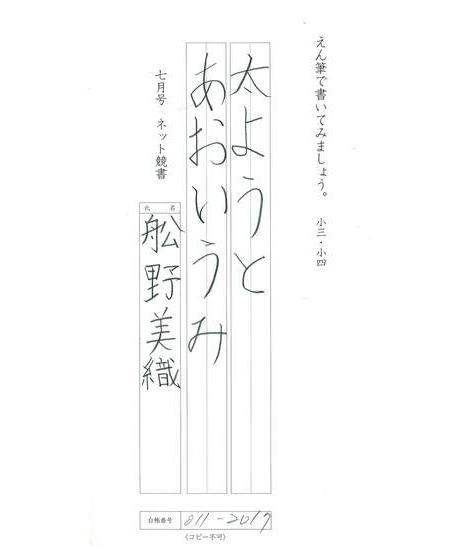 えん筆で書いてみましょう。 小三・小四
太ようと
あおいうみ
七月号 ネット競書
氏名
舩野美織
台帳番号 011-2017
(コピー不可)